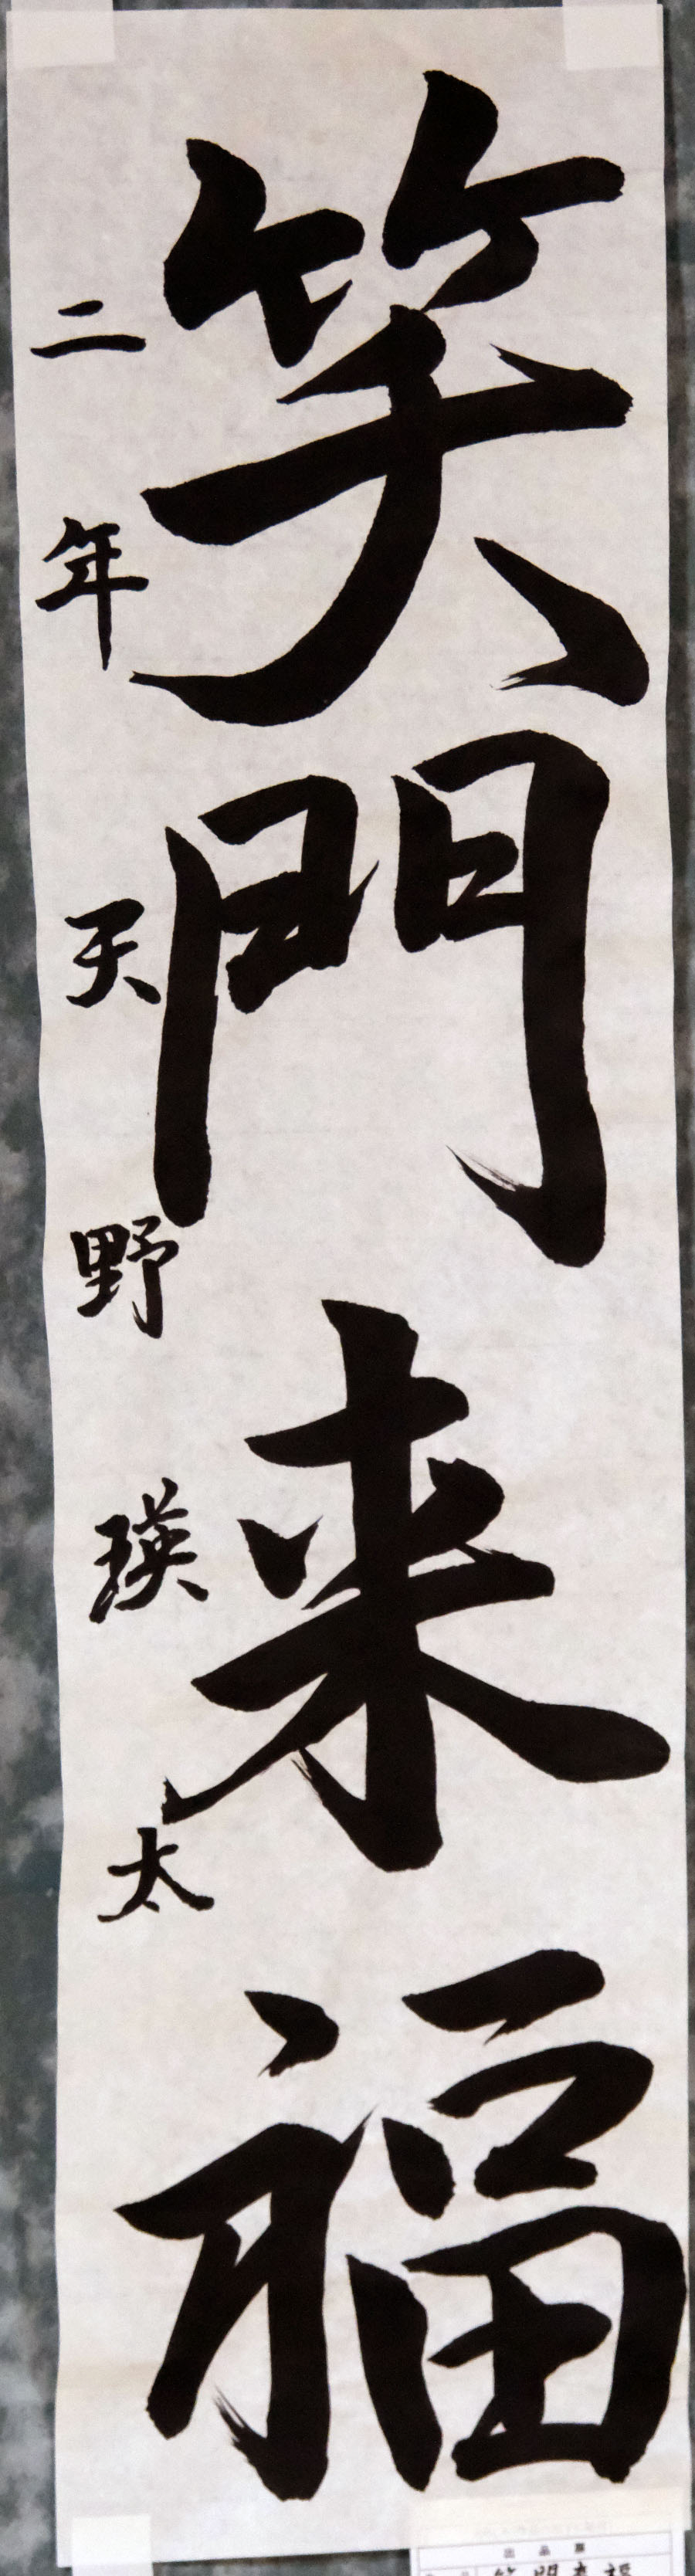 笑門来福
二年 天野 瑛太
出品票
笑門来福